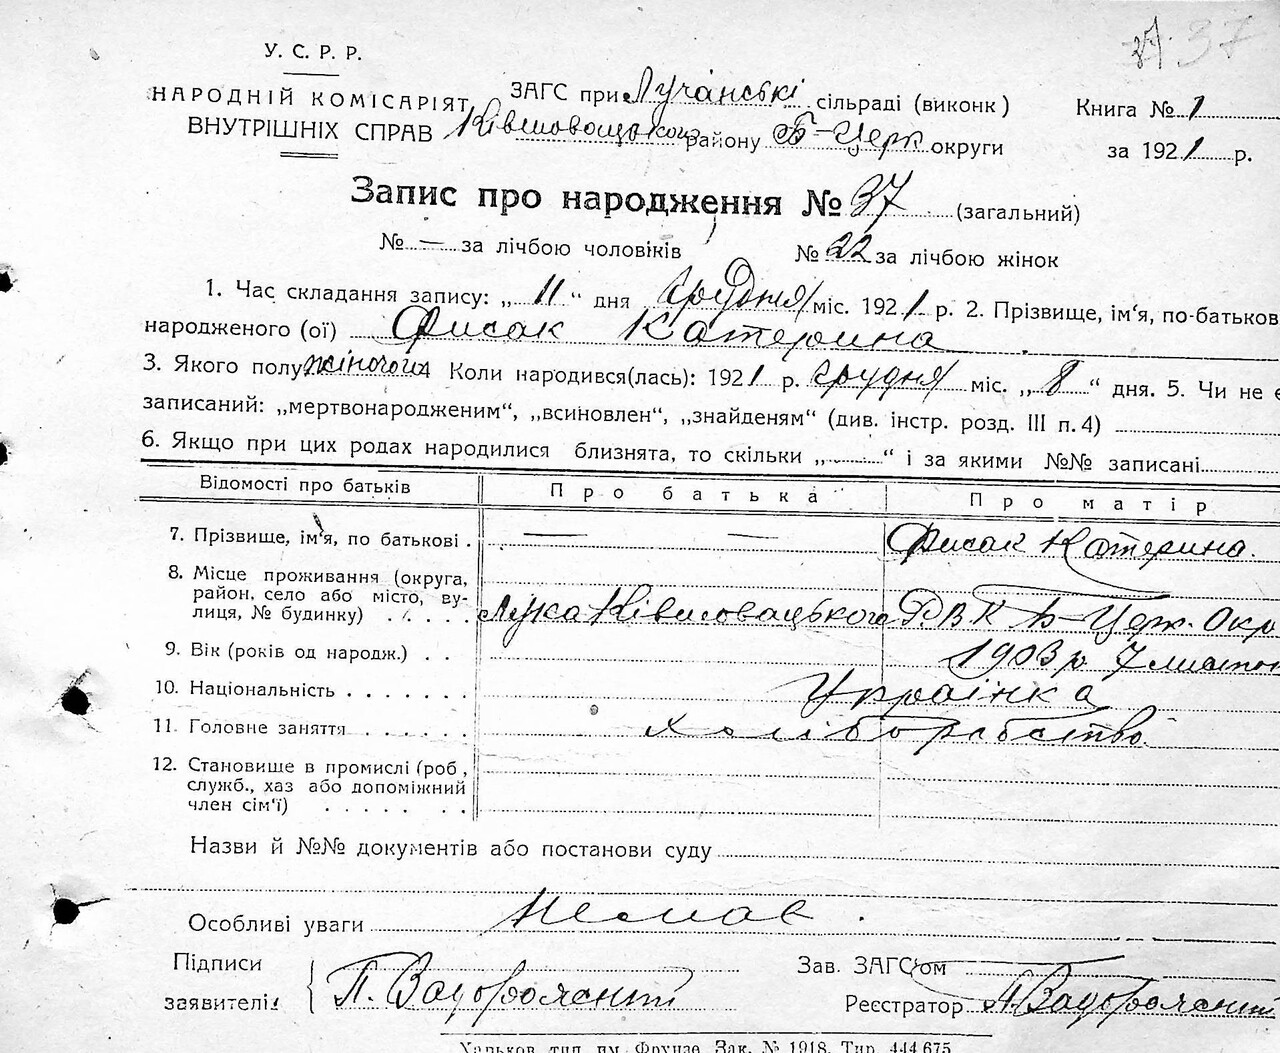 37. 37
У. С. Р. Р.
НАРОДНІЙ КОМІСАРІЯТ
ВНУТРІШНІХ СПРАВ
ЗАГС при Лучанські сільраді (виконк)
Ківшовацького району Б-Церк округи
Книга № 1
за 1921 р.
Запис про народження № 37 (загальний)
№ — за лічбою чоловіків № 22 за лічбою жінок
1. Час складання запису: „ 11 “ дня Грудня міс. 1921 р. 2. Прізвище, ім'я, по-батьков
народженого (ої) Фисак Катерина
3. Якого полу жіночого 4 Коли народився(лась): 1921 р. Грудня міс. „ 8 “ дня. 5. Чи не є
записаний: „мертвонародженим“, „всиновлен“, „знайденям“ (див. інстр. розд. III п. 4)
6. Якщо при цих родах народилися близнята, то скільки „ “ і за якими №№ записані
Відомості про батьків Про батька Про матір
7. Прізвище, ім'я, по батькові . — — Фисак Катерина.
8. Місце проживання (округа,
район, село або місто, ву-
лиця, № будинку) . . . . . Лука Ківшовацького РВК Б-Церк. Окр
9. Вік (років од народж.) . . 1903 р. 7 листоп
10. Національність . . . . . . . Українка
11. Головне заняття . . . . . . хліборобство
12. Становище в промислі (роб,
служб., хаз або допоміжний
член сім'ї) . . . . . . .
Назви й №№ документів або постанови суду
Особливі уваги Немає.
Підписи
заявителів П.
Зав. ЗАГС'ом
Реєстратор
Харьков тип. им. Фрунзе Зак. № 1918. Тир. 444.675